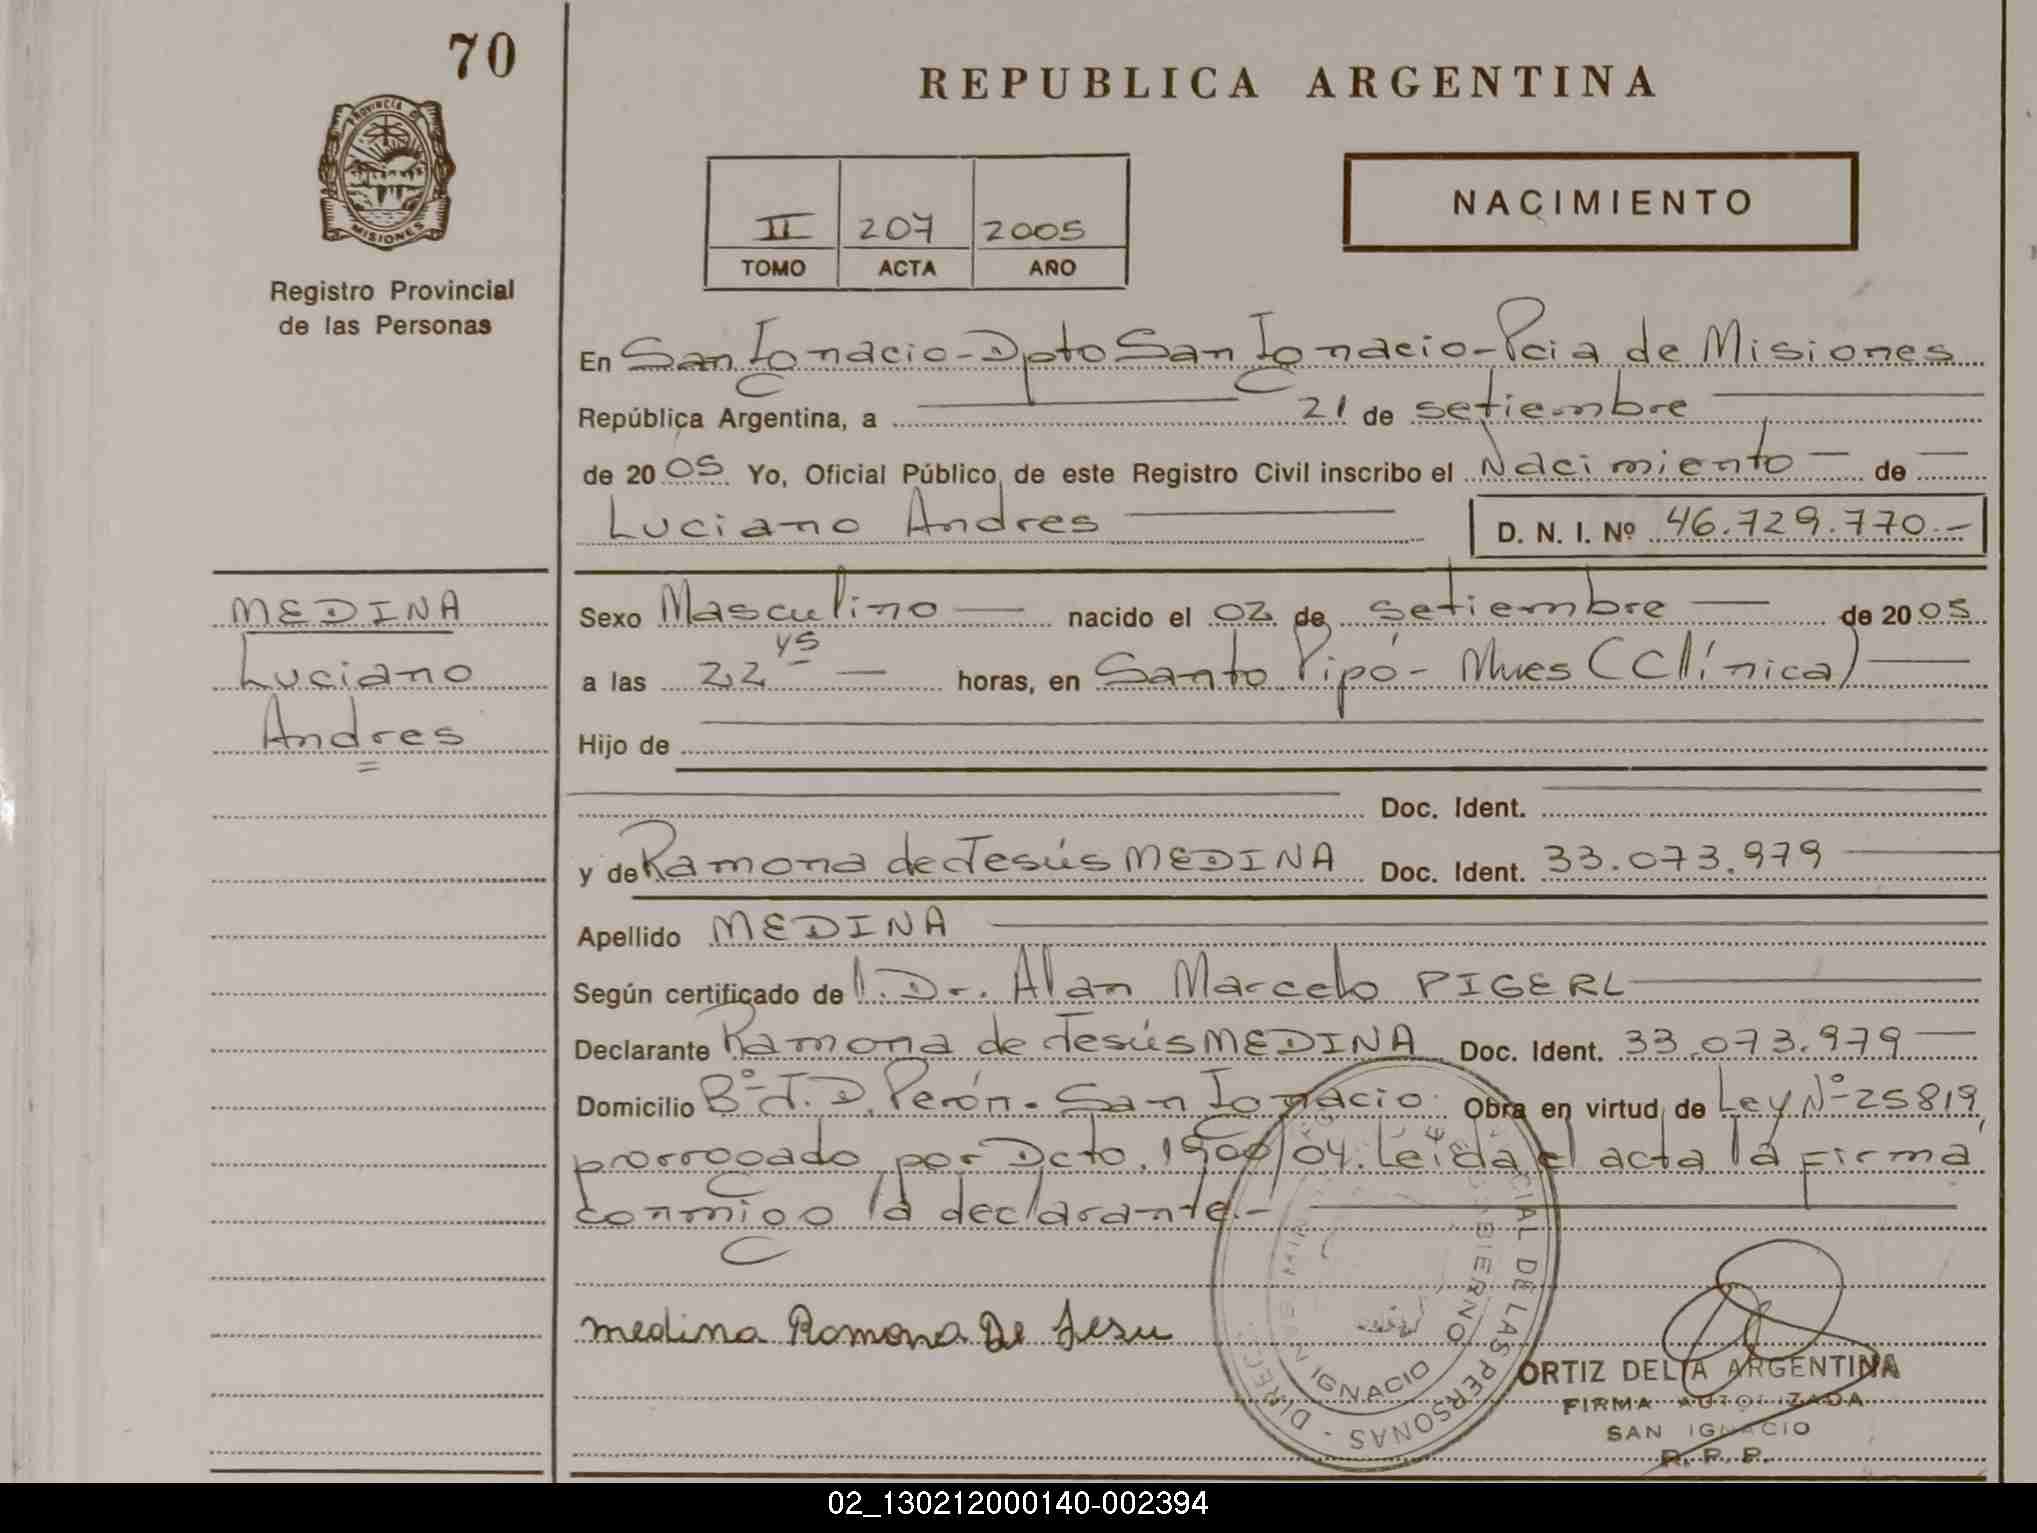 70
REPUBLICA ARGENTINA
PROVINCIA DE
MISIONES
Registro Provincial
de las Personas
II 207 2005
TOMO ACTA AÑO
NACIMIENTO
En San Ignacio - Dpto San Ignacio - Pcia de Misiones
República Argentina, a 21 de setiembre
de 2005 Yo, Oficial Público, de este Registro Civil inscribo el Nacimiento — de —
Luciano Andres
D. N. I. Nº 46.729.770.-
MEDINA
Luciano
Andres
Sexo Masculino — nacido el 02 de setiembre — de 2005
a las 22 45 — horas, en Santo Pipó - Mnes (Clínica)
Hijo de
Doc. Ident.
y de Ramona de Jesús MEDINA Doc. Ident. 33.073.979
Apellido MEDINA
Según certificado del Dr. Alan Marcelo PIGERL
Declarante Ramona de Jesús MEDINA Doc. Ident. 33.073.979
Domicilio Bº J. D. Perón. San Ignacio. Obra en virtud de Ley Nº 25819,
prorrogado por Dcto. 1900/04. Leída el acta la firma
conmigo la declarante.-
medina Ramona De Jesu
CIAL DE LAS PERSONAS - DIREC
BIERNO
IGNACIO
ORTIZ DELIA ARGENTINA
FIRMA AUTORIZADA
SAN IGNACIO
R. P. P.
02_130212000140-002394